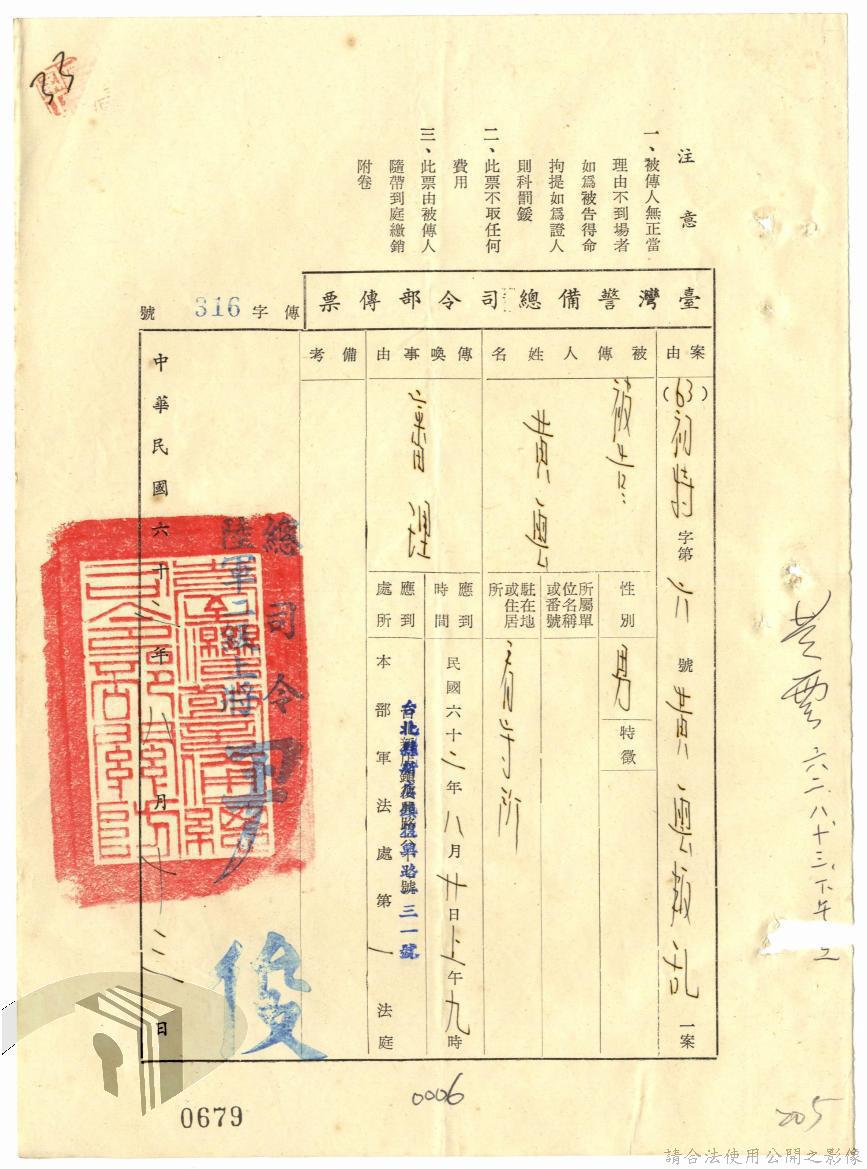 33
注意
一、被傳人無正當
理由不到場者
如為被告得命
拘提如為證人
則科罰鍰
二、此票不取任何
費用
三、此票由被傳人
隨帶到庭繳銷
附卷
臺灣警備總司令部傳票
傳字 316 號
案由
(63)初特字第 六 號 黃 叛亂 一案
被傳人姓名
被告
黃
性別
男
特徵
所屬單位名稱或番號
駐在地或住居所
看守所
傳喚事由
審理
應到時間
民國六十二年八月廿日上午九時
應到處所
台北縣新店鎮復興路三一號
本部軍法處第一法庭
備考
總司令
陸軍二級上將
尹
俊
中華民國六十二年八月十三日
六二、八、十三、下午
0006
0679
205
請合法使用公開之影像